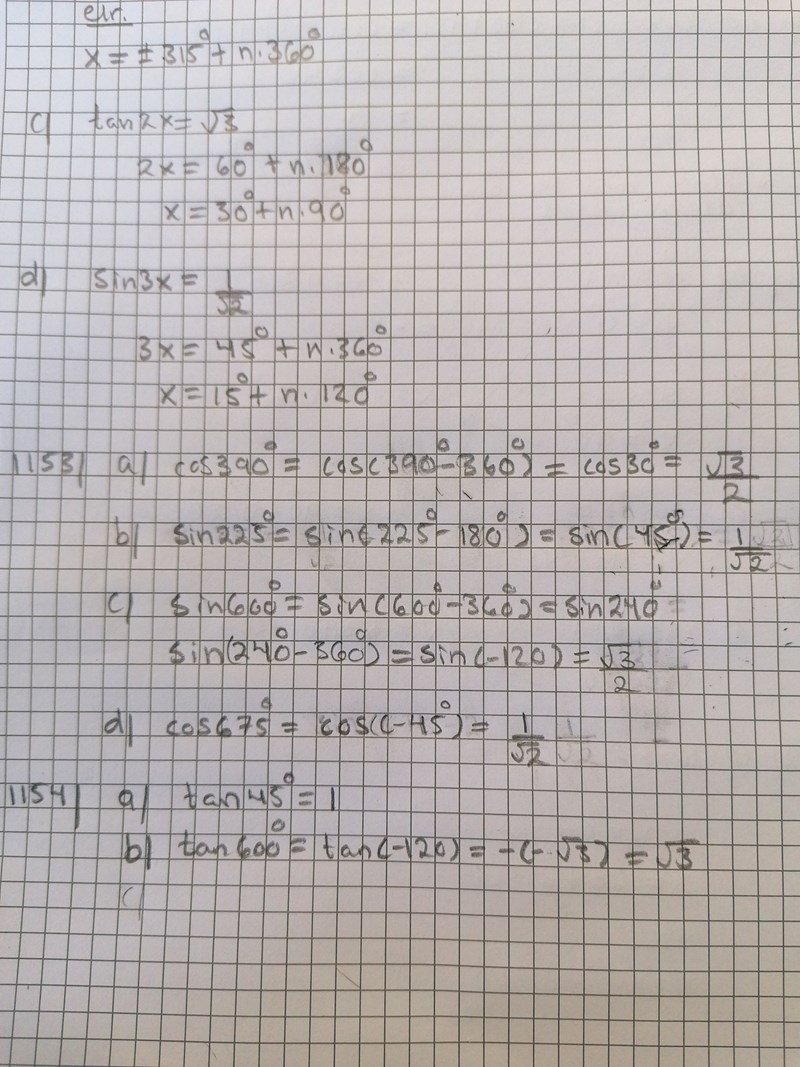 eller.
x = ± 315° + n·360°
c) tan2x = √3
2x = 60° + n·180°
x = 30° + n·90°
d) sin3x = 1/√2
3x = 45° + n·360°
x = 15° + n·120°
1153) a) cos390° = cos(390° - 360°) = cos30° = √3/2
b) sin225° = sin(225° - 180°) = sin(45°) = 1/√2
c) sin600° = sin(600° - 360°) = sin240° =
sin(240° - 360°) = sin(-120) = √3/2
d) cos675° = cos(-45°) = 1/√2
1154) a) tan45° = 1
b) tan600° = tan(-120) = -(-√3) = √3
c)